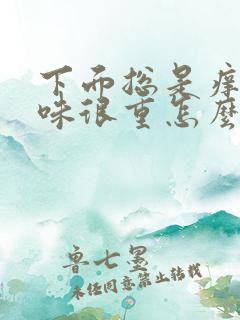 下面总是痒
味很重怎麽
鲁七墨
未经同意禁止转载